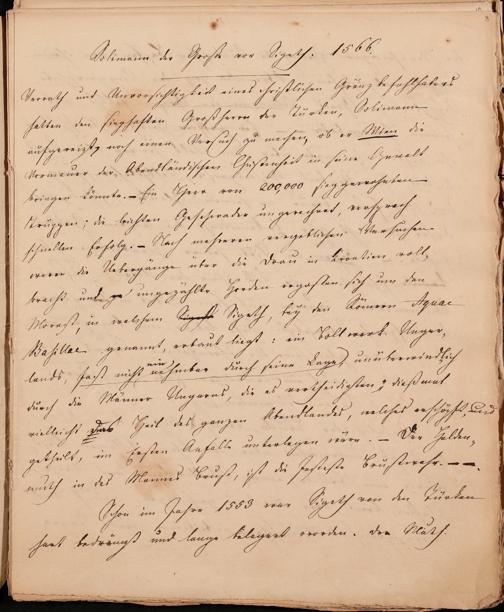 Solimann der Große vor Sigeth. 1566.
Verrath und Unvorsichtigkeit eines christlichen Gränzbefehlshabers
hatten den sieghaften Großherrn der Türken, Solimann
aufgereizt, noch einen Versuch zu machen, ob er Wien die
Vormauer der Abendländischen Christenheit in seine Gewalt
bringen könnte. – Ein Heer von 200,000 sieggewohnten
Truppen; die leichten Geschwader ungerechnet, versprach
schnellen Erfolg. – Nach mehreren vergeblichen Versuchen
waren die Uebergänge über die Drau in Kroatien voll-
bracht und ungezählte Horden ergossen sich um den
Morast, in welchem Sigeth, bey den Römern Aquae
Basillae genannt, erbaut liegt: ein Bollwerk Ungar-
lands, fast nicht nur nehmbar durch seine Lage, unüberwindlich
durch die Männer Ungarns, die es vertheidigten; dießmal
vielleicht das Heil des ganzen Abendlandes, welches erschöpft und
getheilt, im ersten Anfalle unterlegen wäre. – Der Helden-
muth in des Mannes Brust, ist die festeste Brustwehr. – –.
Schon im Jahre 1553 war Sigeth von den Türken
hart bedrängt und lange belagert worden. Der Muth